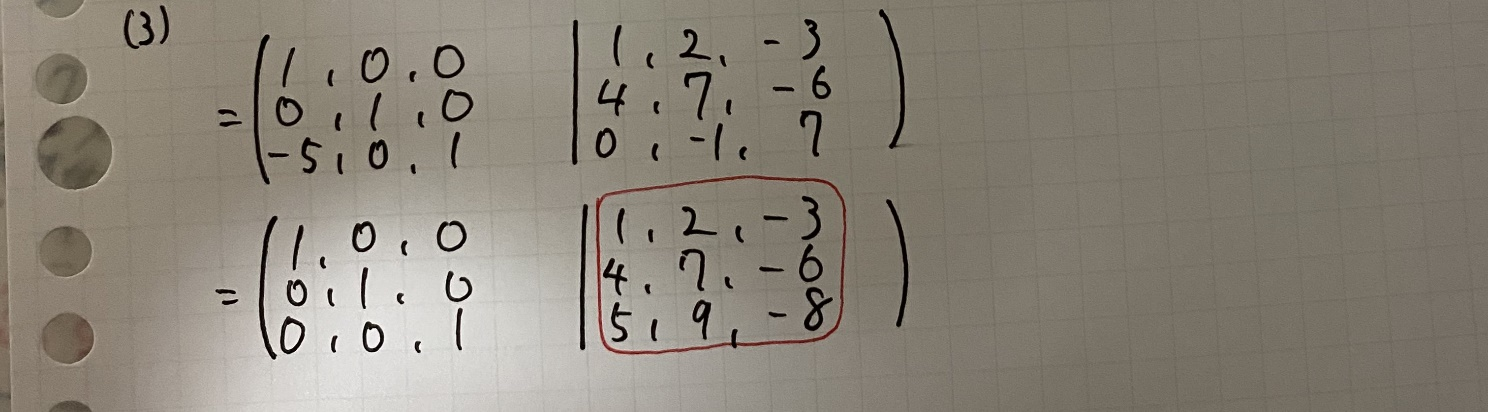 (3)
= ( 1, 0, 0 | 1, 2, -3 )
0, 1, 0 | 4, 7, -6
-5, 0, 1 | 0, -1, 7
= ( 1, 0, 0 | 1, 2, -3 )
0, 1, 0 | 4, 7, -6
0, 0, 1 | 5, 9, -8